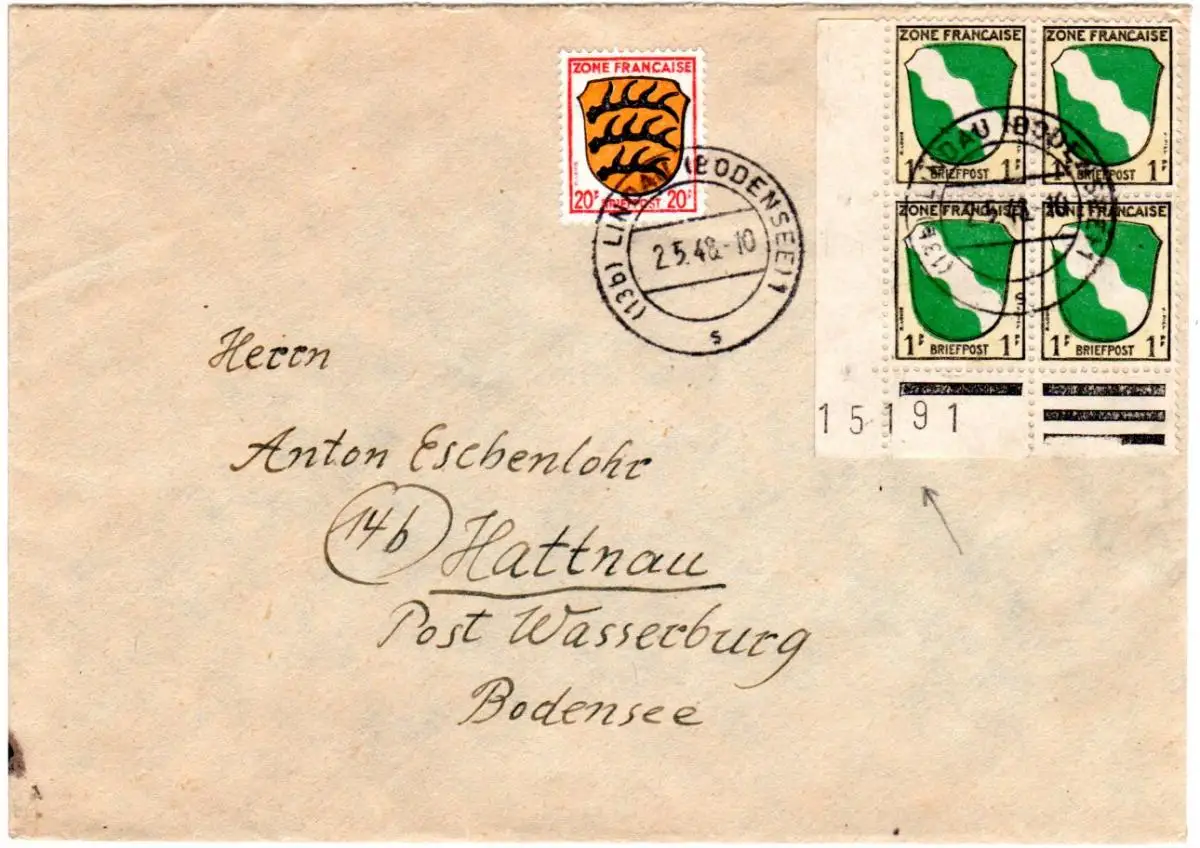 ZONE FRANCAISE
20F BRIEFPOST 20F
(13b) LINDAU (BODENSEE) 1
2.5.48.-10
s
ZONE FRANCAISE
1F BRIEFPOST 1F
ZONE FRANCAISE
1F BRIEFPOST 1F
ZONE FRANCAISE
1F BRIEFPOST 1F
ZONE FRANCAISE
1F BRIEFPOST 1F
(13b) LINDAU (BODENSEE) 1
2.5.48.-10
s
15191
Herrn
Anton Eschenlohr
14b Hattnau
Post Wasserburg
Bodensee